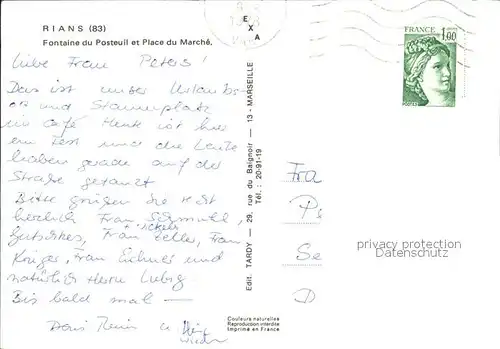 RIANS (83)
Fontaine du Posteuil et Place du Marché.
E
X
A
FRANCE
1,00
POSTES
Liebe Frau Peters!
Das ist unser Urlaubs-
ort und Stammplatz
im Café. Heute ist hier
ein Fest und die Leute
haben gerade auf der
Straße getanzt
Bitte grüßen Sie recht
herzlich Frau Schmull,
Frau Zeller, Frau
Krüger, Frau und
natürlich Herrn Liebig.
Bis bald mal —
Edit. TARDY — 29, rue du Baignoir — 13 - MARSEILLE
Tél. : 20-91-19
Fra
Pe
Se
D
privacy protection
Datenschutz
Couleurs naturelles
Reproduction interdite
Imprimé en France